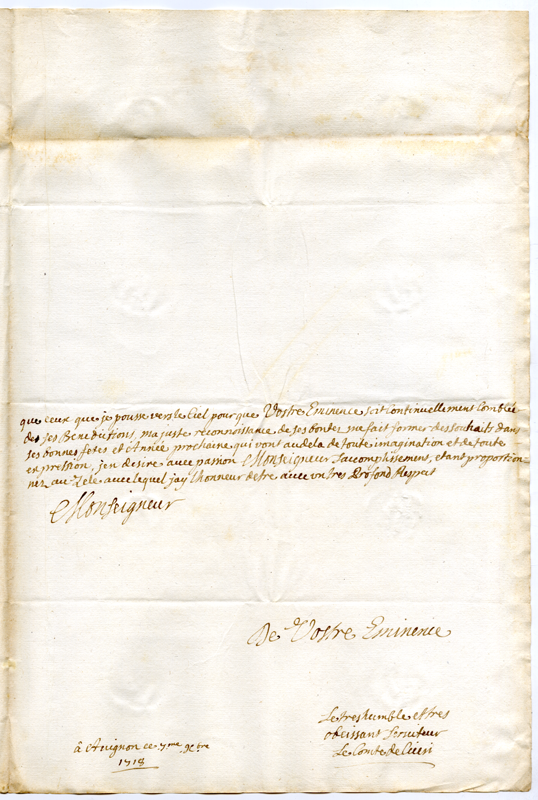 que ceux que je pousse vers le Ciel pour que Vostre Eminence soit Continuellement Comblée
des ses Benedictions, ma juste réconnoissance de ses bontez me fait former des souhaits dans
ses bonnes fetes et Année prochaine qui vont au dela de toute imagination et de toute
expression, j'en desire avec passion Monseigneur l'accomplissement, etant proportion
néz au Zele avec lequel jay l'honneur d'etre avec un tres Profond Respect
Monseigneur
De Vostre Eminence
Le tres humble et tres
obeissant Serviteur
Le Comte de
à Avignon ce 7me Xbre
1718